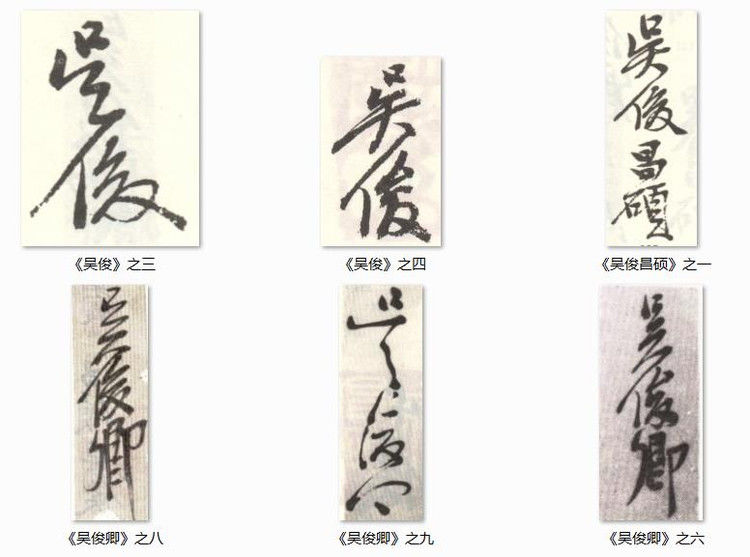 吳俊
吳俊
吳俊昌碩
《吴俊》之三
《吴俊》之四
《吴俊昌硕》之一
吳俊卿
吳俊卿
吳俊卿
《吴俊卿》之八
《吴俊卿》之九
《吴俊卿》之六